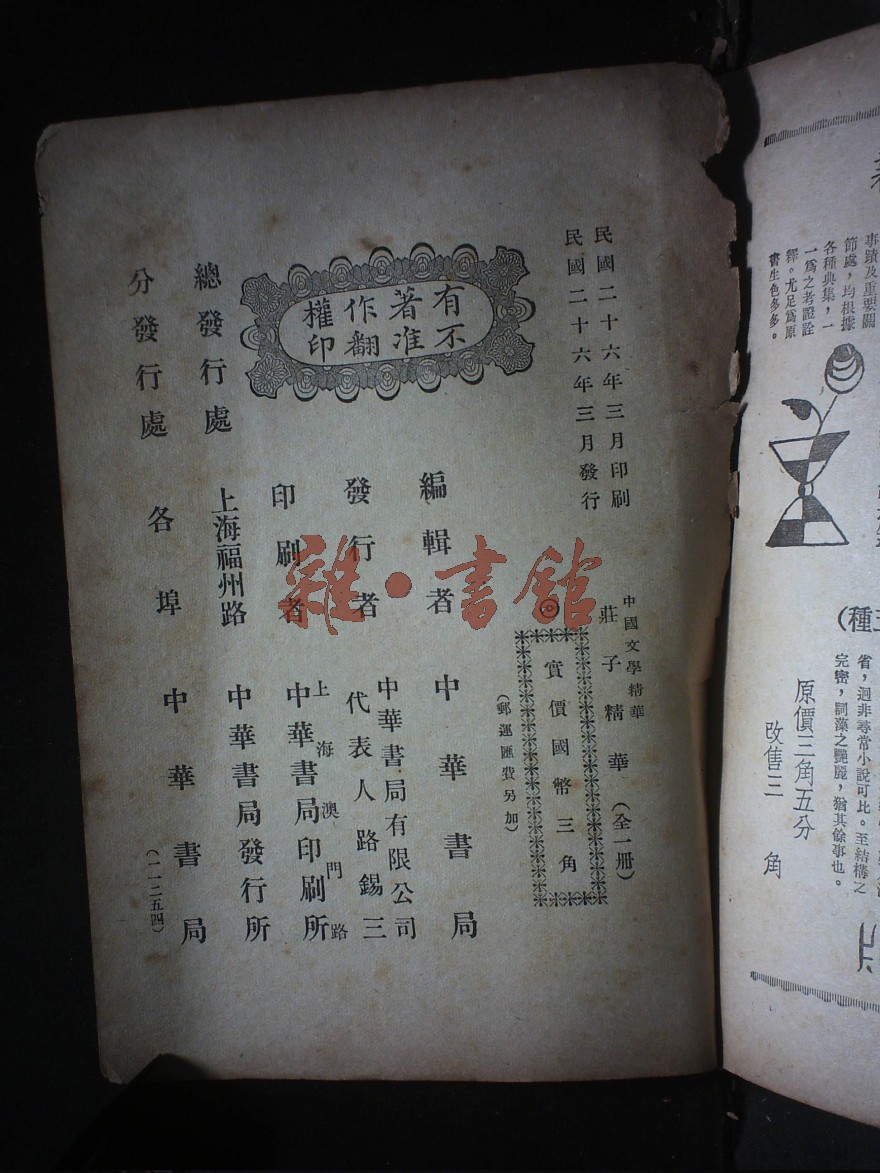 民國二十六年三月印刷
民國二十六年三月發行
中國文學精華
莊子精華（全一冊）
◎實價國幣三角
（郵運匯費另加）
有著作權
不准翻印
編輯者 中華書局
發行者 中華書局有限公司
代表人路錫三
印刷者 上海澳門路
中華書局印刷所
總發行處 上海福州路 中華書局發行所
分發行處 各埠 中華書局
（一一二五四）
雜·書館
事蹟及重要關
節處，均根據
各種典集，一
一爲之考證詮
釋。尤足爲原
書生色多多。
種）
原價三角五分
改售三 角
省，迥非尋常小說可比。至結構之
完密，詞藻之艷麗，猶其餘事也。